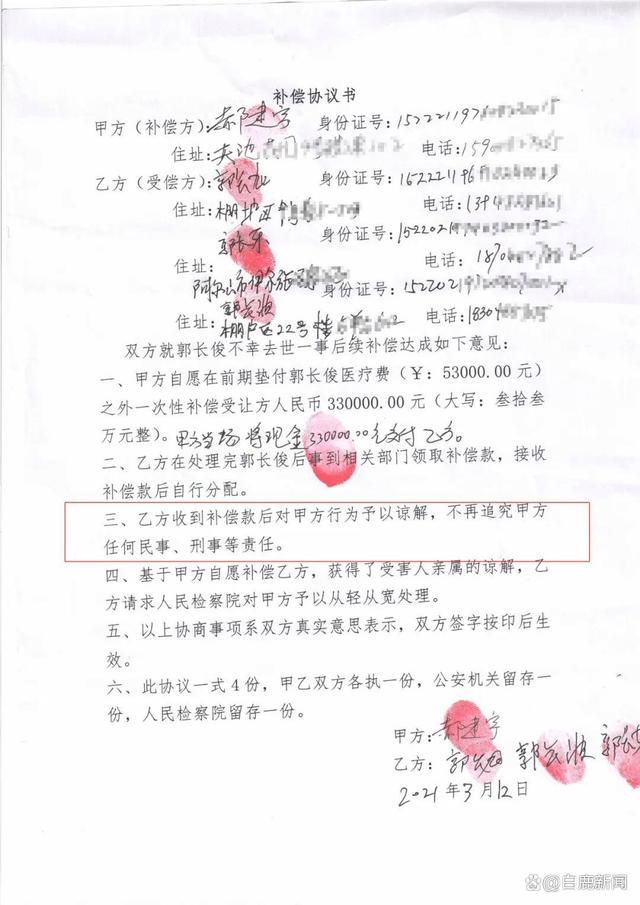 补偿协议书
甲方（补偿方）：郝建宇 身份证号：152221197
住址： 电话：1590
乙方（受偿方）： 身份证号：152221196
住址：棚户区 电话：1394
身份证号：1522021
住址： 电话：1870
阿尔山市伊尔施 身份证号：1522021
郭长波
住址：棚户区22号楼 电话：18304
双方就郭长俊不幸去世一事后续补偿达成如下意见：
一、甲方自愿在前期垫付郭长俊医疗费（¥：53000.00元）
之外一次性补偿受让方人民币330000.00元（大写：叁拾叁
万元整）。甲方当场将现金330000.00元交付乙方。
二、乙方在处理完郭长俊后事到相关部门领取补偿款，接收
补偿款后自行分配。
三、乙方收到补偿款后对甲方行为予以谅解，不再追究甲方
任何民事、刑事等责任。
四、基于甲方自愿补偿乙方，获得了受害人亲属的谅解，乙
方请求人民检察院对甲方予以从轻从宽处理。
五、以上协商事项系双方真实意思表示，双方签字按印后生
效。
六、此协议一式4份，甲乙双方各执一份，公安机关留存一
份，人民检察院留存一份。
甲方：郝建宇
乙方：郭长波
2021年3月12日
白鹿新闻